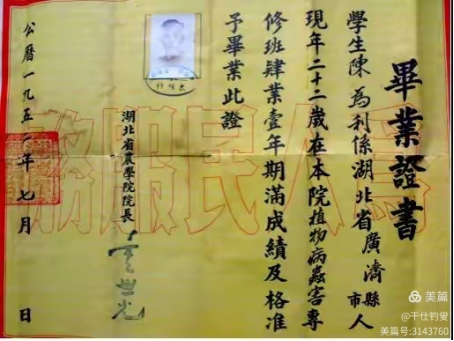 畢業證書
學生陳爲利係湖北省廣濟縣市人
現年二十二歲在本院植物病蟲害專
修班肄業壹年期滿成績及格准
予畢業此證
湖北省農學院院長
童世光
公曆一九五年七月 日
爲人民服務
美篇
@干仕钓叟
美篇号:3143760